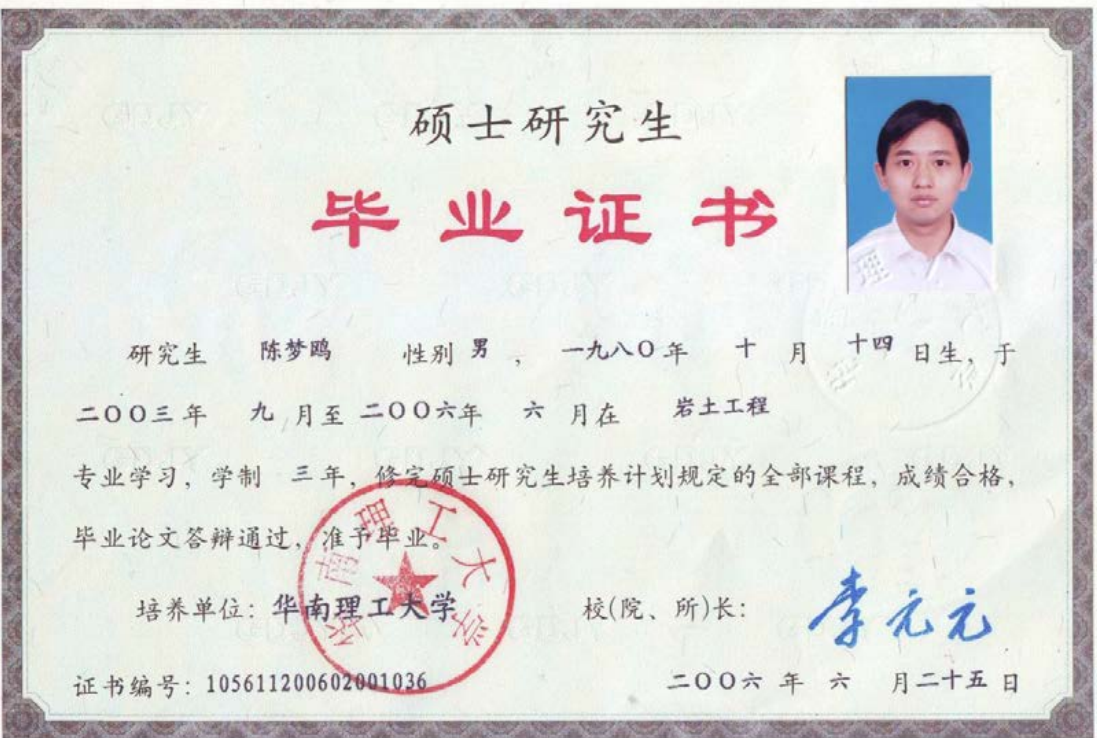 硕士研究生
毕业证书
研究生 陈梦鸥 性别 男 , 一九八〇年 十 月 十四 日生, 于
二〇〇三年 九 月至 二〇〇六年 六 月在 岩土工程
专业学习, 学制 三年, 修完硕士研究生培养计划规定的全部课程, 成绩合格,
毕业论文答辩通过, 准予毕业。
华南理工大学
培养单位: 华南理工大学 校(院、所)长: 李元元
证书编号: 105611200602001036 二〇〇六 年 六 月二十五 日